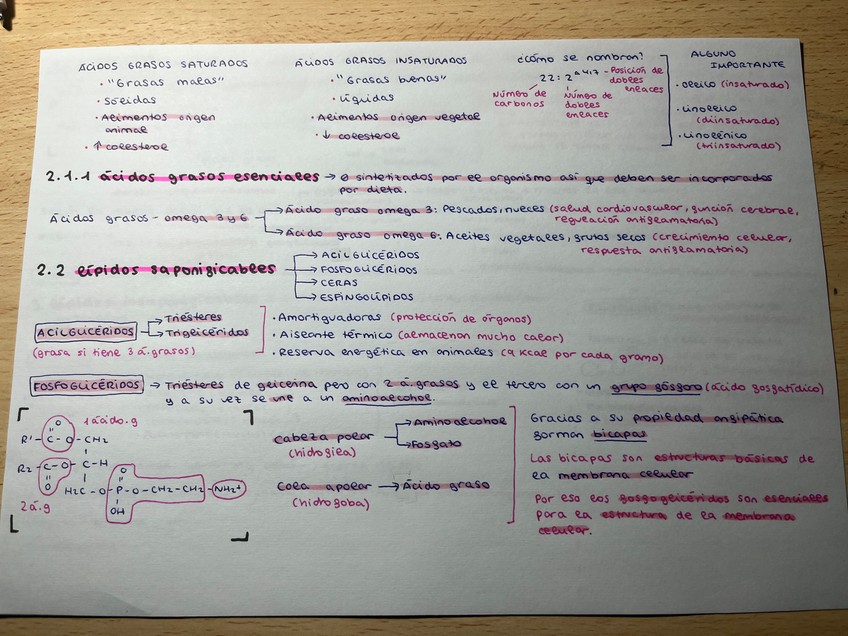 ÁCIDOS GRASOS SATURADOS
· "Grasas malas"
· Sólidas
· Alimentos origen
animal
· ↑ colesterol
ÁCIDOS GRASOS INSATURADOS
· "Grasas buenas"
· Líquidas
· Alimentos origen vegetal
· ↓ colesterol
¿Cómo se nombran?
22:2 Δ4,17 - Posición de
dobles
enlaces
Número de
carbonos
Número de
dobles
enlaces
ALGUNO
IMPORTANTE
· Oleico (insaturado)
· Linoleico
(diinsaturado)
· Linolénico
(triinsaturado)
2.1.1 ácidos grasos esenciales → Ø sintetizados por el organismo así que deben ser incorporados
por dieta.
Ácidos grasos - omega 3 y 6
→ Ácido graso omega 3: Pescados, nueces (salud cardiovascular, función cerebral,
regulación antiflamatoria)
→ Ácido graso omega 6: Aceites vegetales, frutos secos (crecimiento celular,
respuesta antiflamatoria)
2.2 lípidos saponificables
→ ACILGLICÉRIDOS
→ FOSFOGLICÉRIDOS
→ CERAS
→ ESFINGOLÍPIDOS
ACILGLICÉRIDOS
(grasa si tiene 3 á.grasos)
→ Triésteres
→ Trigelicéridos
· Amortiguadoras (protección de órganos)
· Aislante térmico (almacenan mucho calor)
· Reserva energética en animales (9 Kcal por cada gramo)
FOSFOGLICÉRIDOS → Triésteres de glicerina pero con 2 á.grasos y el tercero con un grupo fósforo (ácido fosfatídico)
y a su vez se une a un aminoalcohol.
1 ácido.g
O
R' - C - O - CH2
R2 - C - O - C - H
O
O
H2C - O - P - O - CH2 - CH2 - NH2+
OH
2 á.g
Cabeza polar
(hidrofila)
→ Aminoalcohol
→ Fosfato
Cola apolar → Ácido graso
(hidrofoba)
Gracias a su propiedad anfipática
forman bicapas
Las bicapas son estructuras básicas de
la membrana celular
Por eso los fosfoglicéridos son esenciales
para la estructura de la membrana
celular.